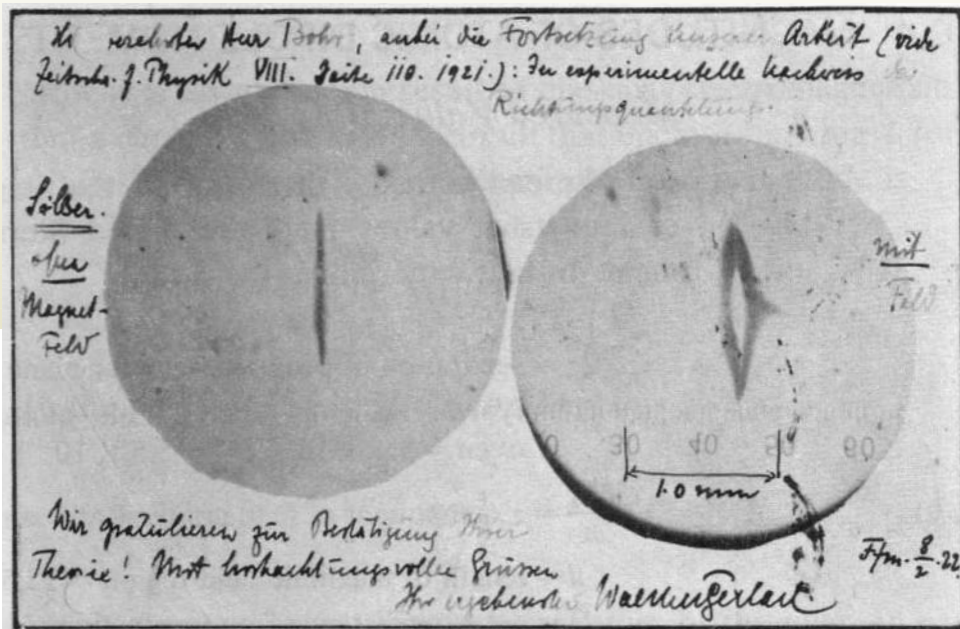 verehrter Herr Bohr, anbei die Fortsetzung unserer Arbeit (vide
Zeitschr. f. Physik VIII. Seite 110. 1921.): Der experimentelle Nachweis der
Richtungsquantelung.
Silber
ohne
Magnet-
Feld
mit
Feld
30 40 50 60
1.0 mm
Wir gratulieren zur Bestätigung Ihrer
Theorie! Mit hochachtungsvollen Grüssen
Ihr ergebenster Walther Gerlach
Ffm. 8/2. 22.